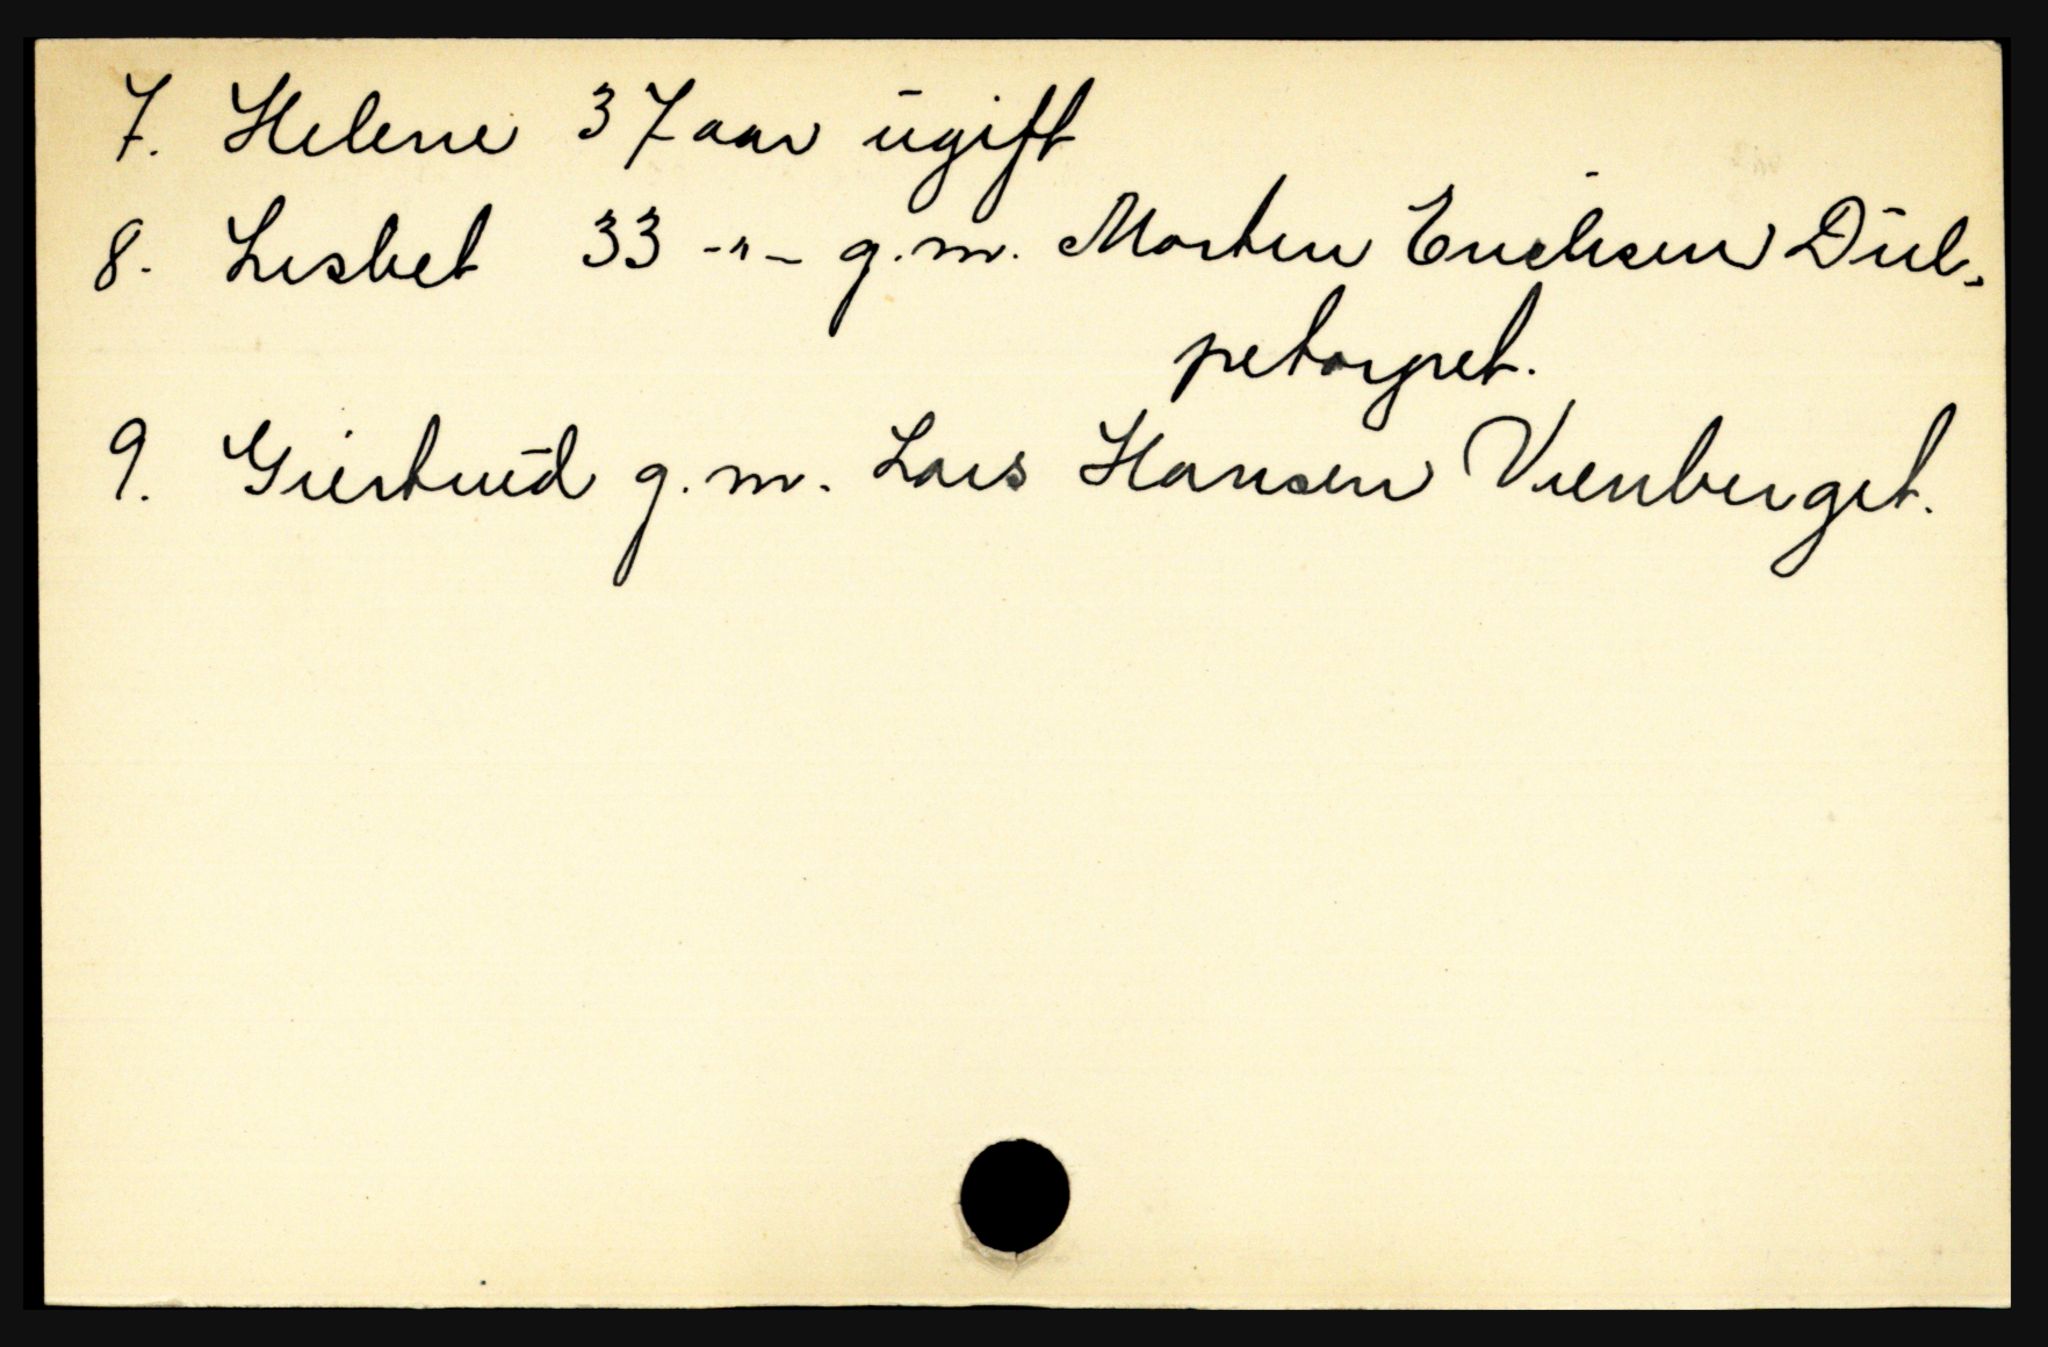 7. Helene 37 aar ugift
8. Lisbet 33 -"- g.m. Morten Erichsen Dul-
petorget.
9. Giertrud g.m. Lars Hansen Vienberget.